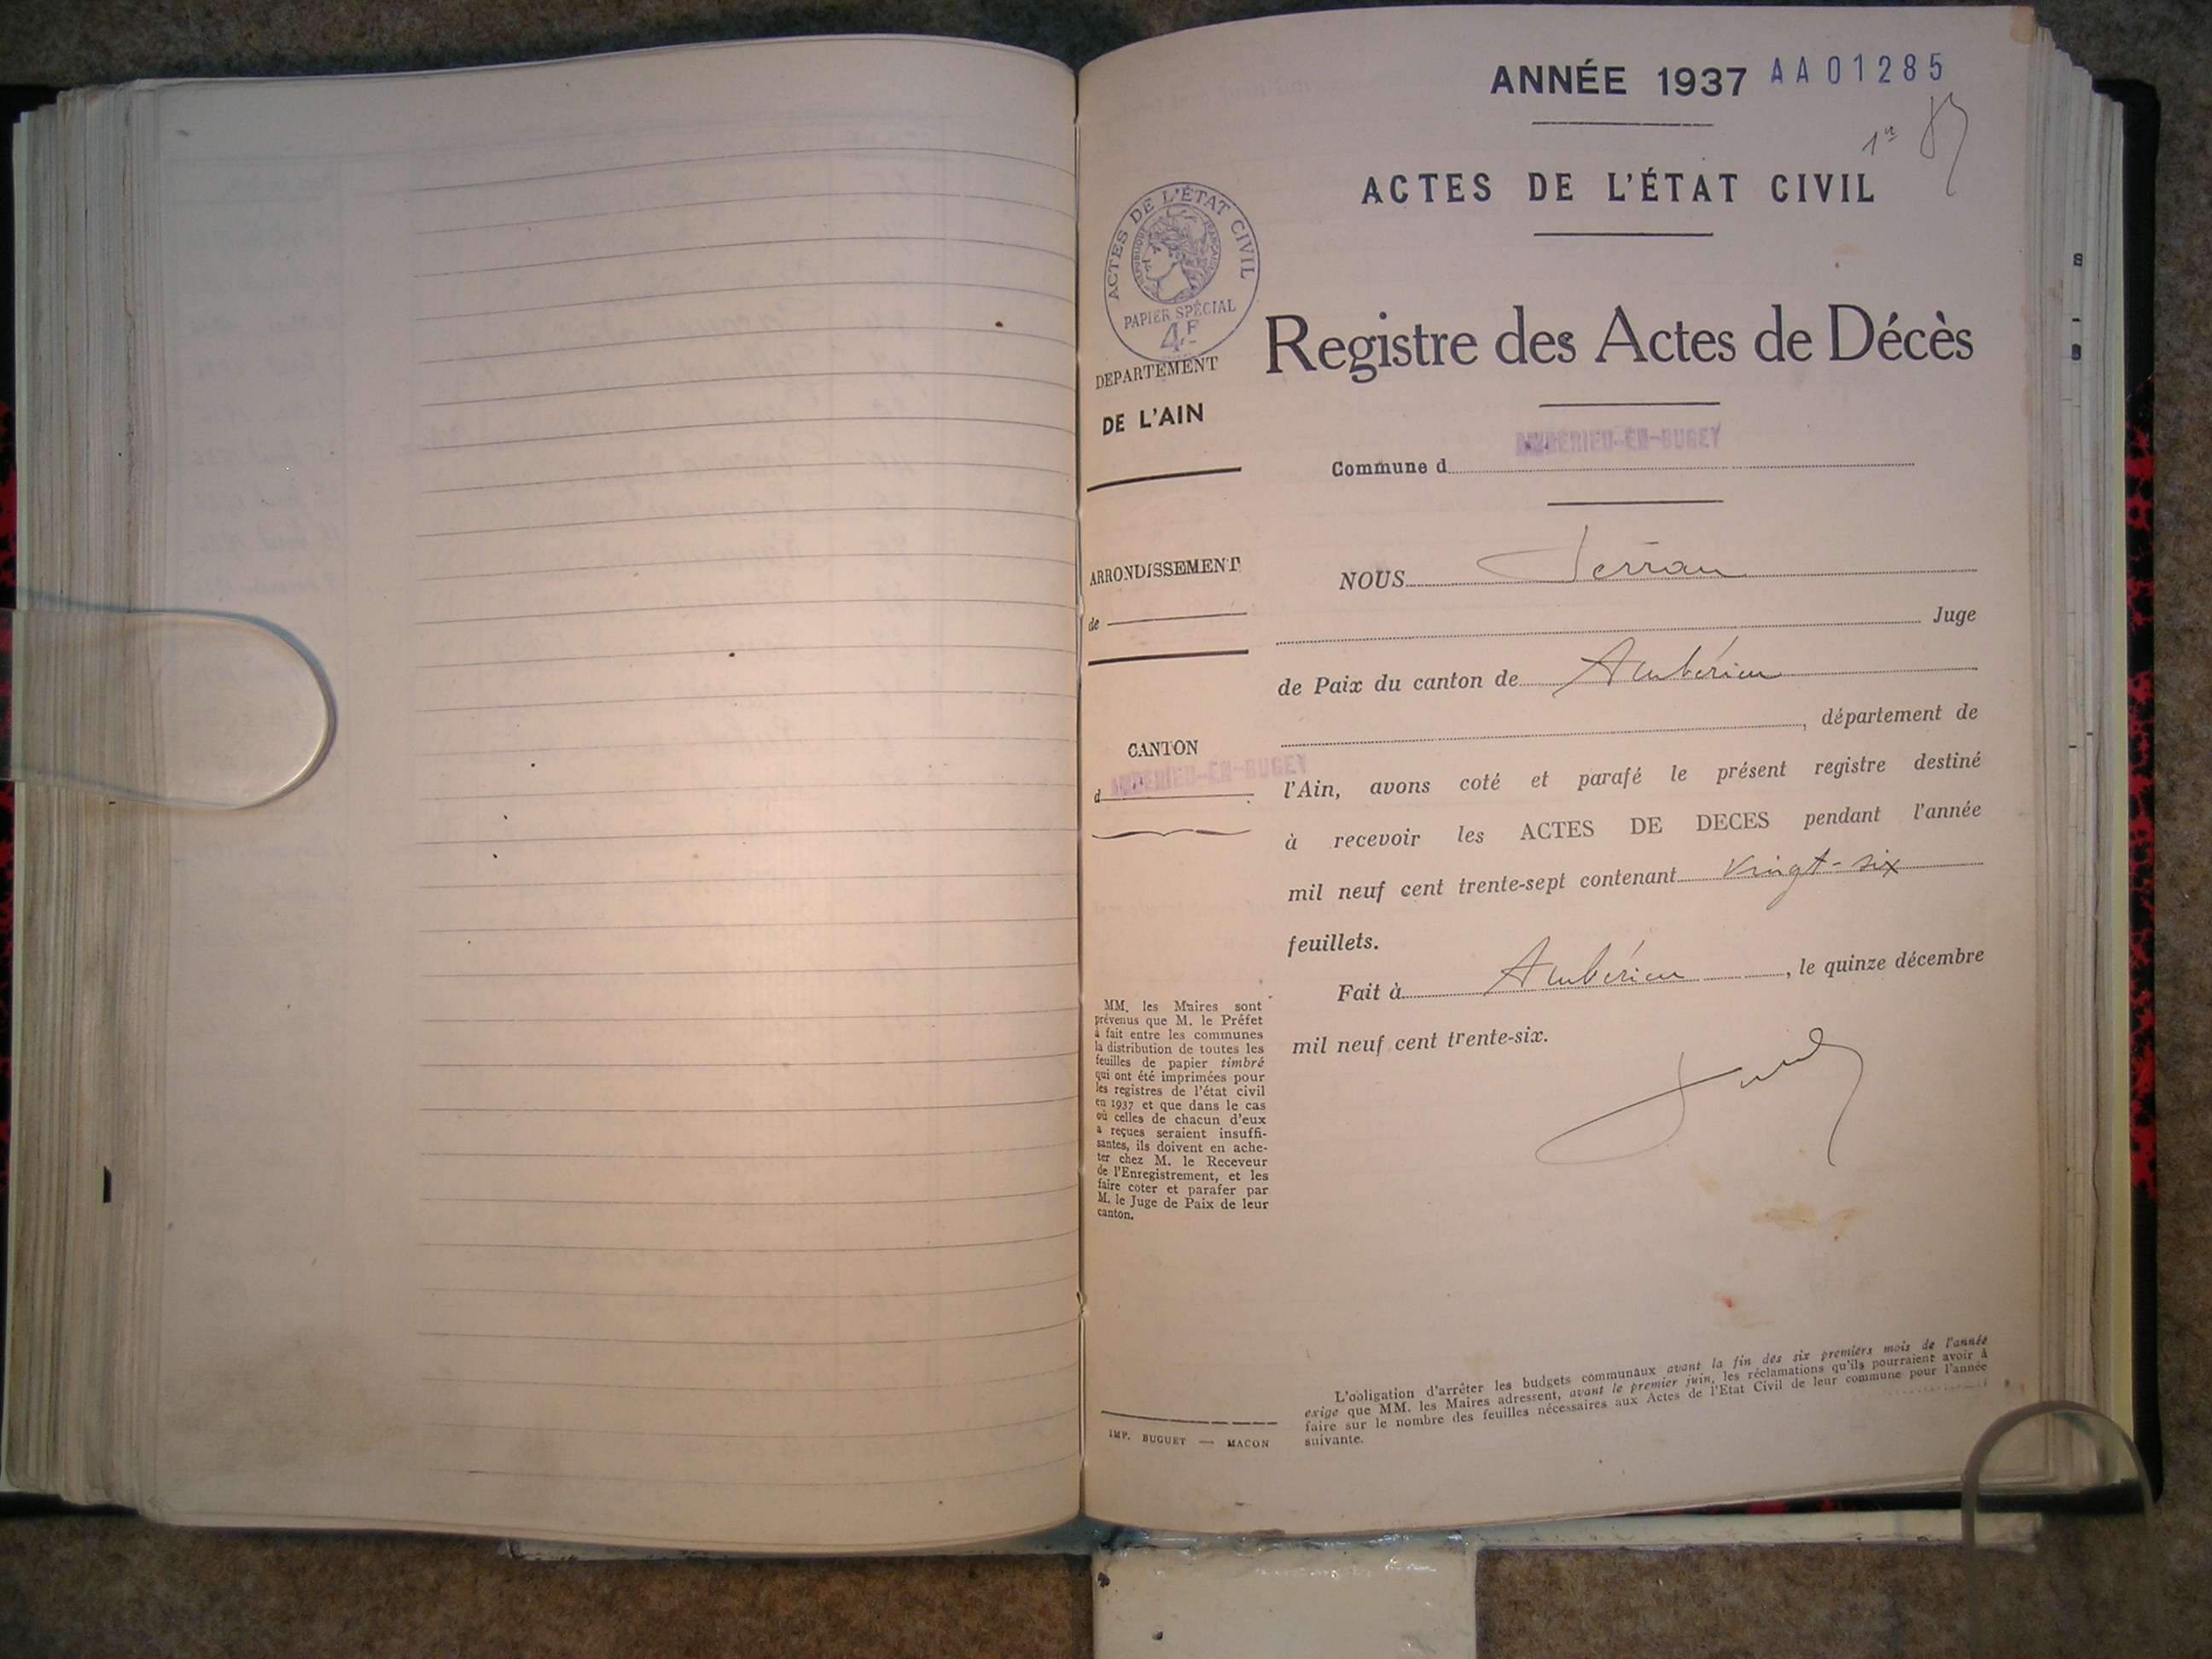 ANNÉE 1937 AA01285
ACTES DE L'ÉTAT CIVIL
ACTES DE L'ÉTAT CIVIL
RÉPUBLIQUE FRANÇAISE
PAPIER SPÉCIAL
4F
DEPARTEMENT
DE L'AIN
ARRONDISSEMENT
de
CANTON
d AMBÉRIEU-EN-BUGEY
MM. les Maires sont
prévenus que M. le Préfet
a fait entre les communes
la distribution de toutes les
feuilles de papier timbré
qui ont été imprimées pour
les registres de l'état civil
en 1937 et que dans le cas
où celles de chacun d'eux
a reçues seraient insuffi-
santes, ils doivent en ache-
ter chez M. le Receveur
de l'Enregistrement, et les
faire coter et parafer par
M. le Juge de Paix de leur
canton.
IMP. BUGUET — MACON
Registre des Actes de Décès
Commune d AMBÉRIEU-EN-BUGEY
NOUS
Juge
de Paix du canton de Ambérieu
, département de
l'Ain, avons coté et parafé le présent registre destiné
à recevoir les ACTES DE DECES pendant l'année
mil neuf cent trente-sept contenant vingt-six
feuillets.
Fait à Ambérieu, le quinze décembre
mil neuf cent trente-six.
L'obligation d'arrêter les budgets communaux avant la fin des six premiers mois de l'année
exige que MM. les Maires adressent, avant le premier juin, les réclamations qu'ils pourraient avoir à
faire sur le nombre des feuilles nécessaires aux Actes de l'Etat Civil de leur commune pour l'année
suivante.